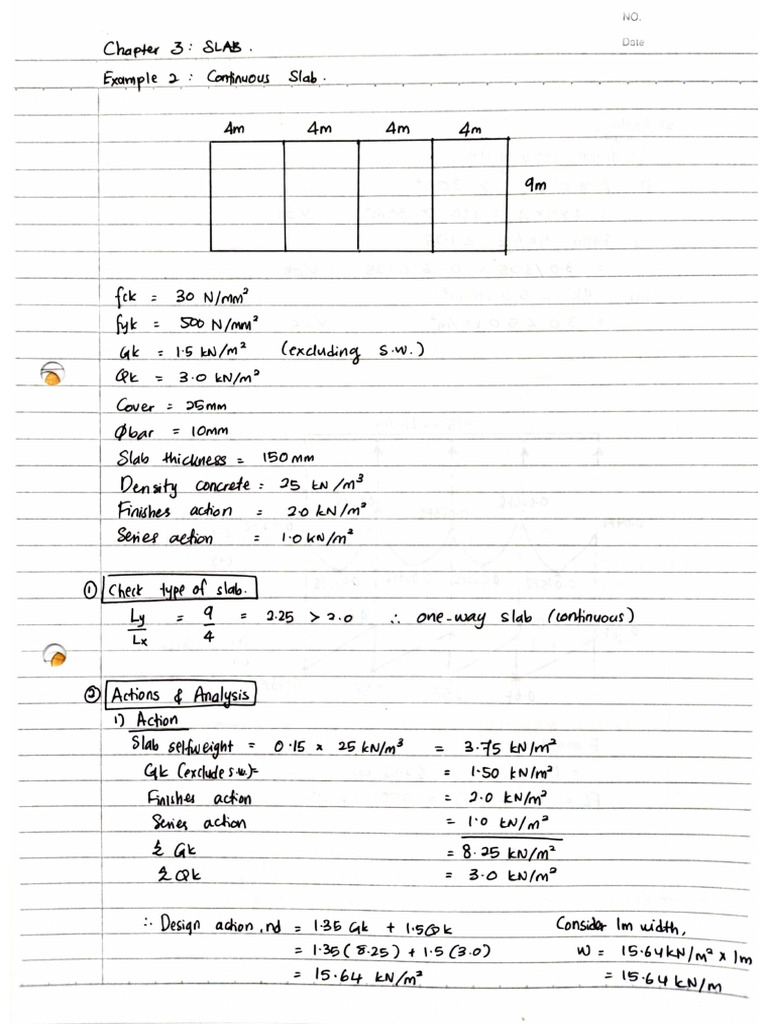 NO.
Date
Chapter 3 : SLAB.
Example 2 : Continuous Slab.
4m 4m 4m 4m
9m
fck = 30 N/mm²
fyk = 500 N/mm²
Gk = 1.5 kN/m² (excluding s.w.)
Qk = 3.0 kN/m²
Cover = 25mm
Øbar = 10mm
Slab thickness = 150 mm
Density concrete = 25 kN/m³
Finishes action = 2.0 kN/m²
Series action = 1.0 kN/m²
① Check type of slab.
Ly/Lx = 9/4 = 2.25 > 2.0 ∴ one-way slab (continuous)
② Actions & Analysis
i) Action
Slab selfweight = 0.15 x 25 kN/m³ = 3.75 kN/m²
Gk (exclude s.w.)= = 1.50 kN/m²
Finishes action = 2.0 kN/m²
Series action = 1.0 kN/m²
Σ Gk = 8.25 kN/m²
Σ Qk = 3.0 kN/m²
∴ Design action, nd = 1.35 Gk + 1.5Qk Consider 1m width,
= 1.35(8.25) + 1.5(3.0) w = 15.64 kN/m² x 1m
= 15.64 kN/m² = 15.64 kN/m